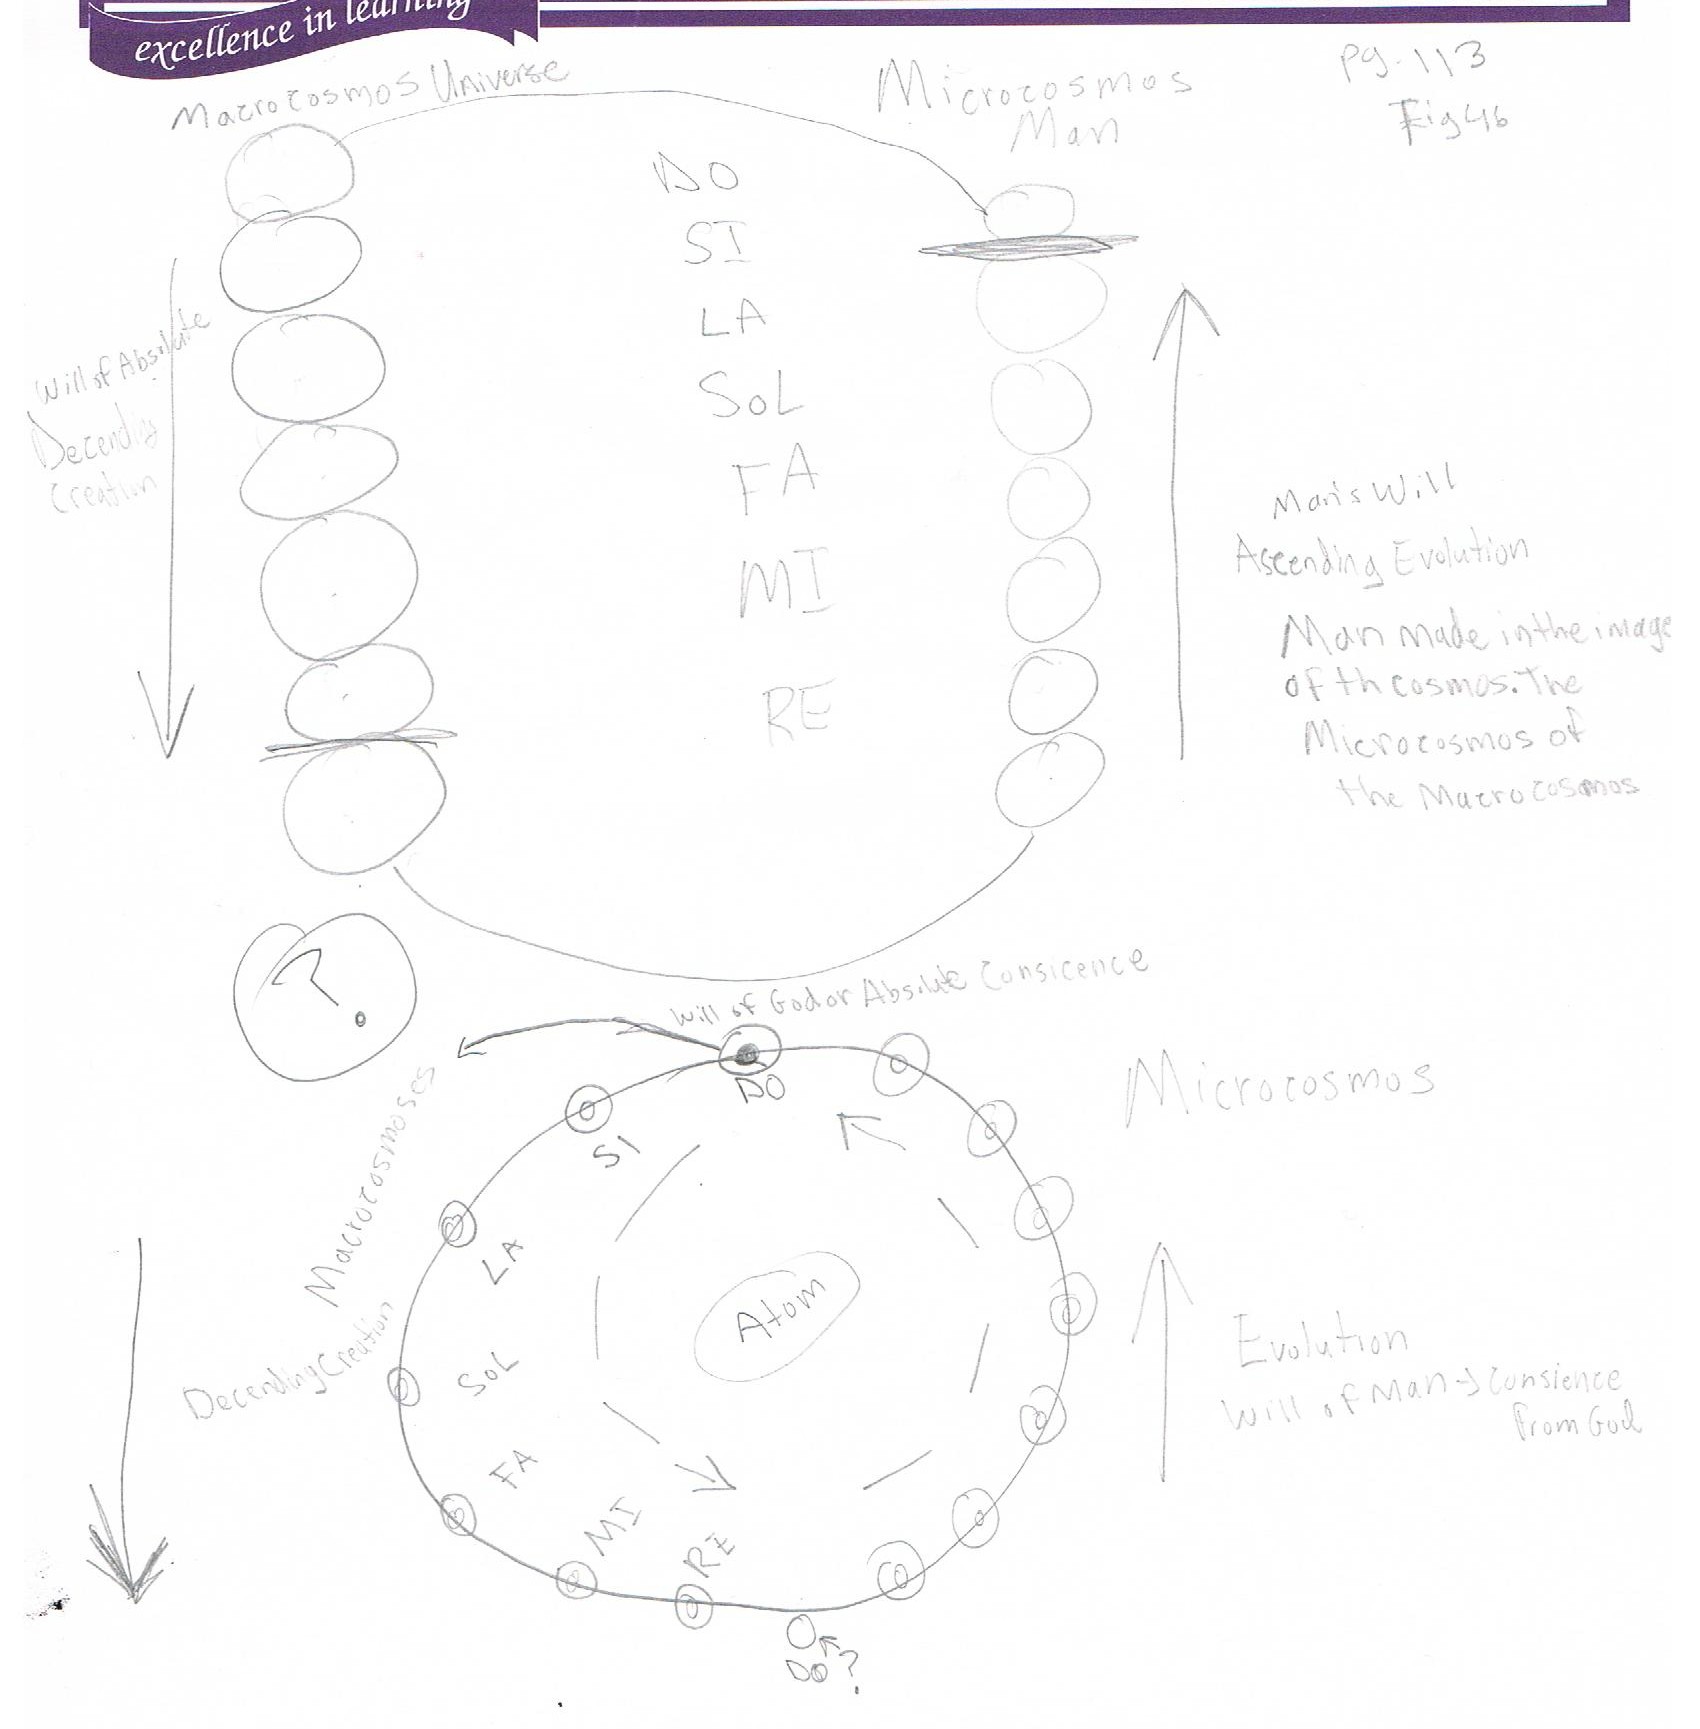 excellence in learning
Macrocosmos Universe
Microcosmos
Man
pg. 113
Fig 4b
DO
SI
LA
SOL
FA
MI
RE
Will of Absolute
Decending
Creation
Man's Will
Ascending Evolution
Man made in the image
of th cosmos. The
Microcosmos of
the Macrocosmos
?
Will of God or Absolute Consicence
DO
SI
LA
SOL
FA
MI
RE
DO?
Macrocosmoses
Decending Creation
Atom
Microcosmos
Evolution
Will of Man → Consience
From God